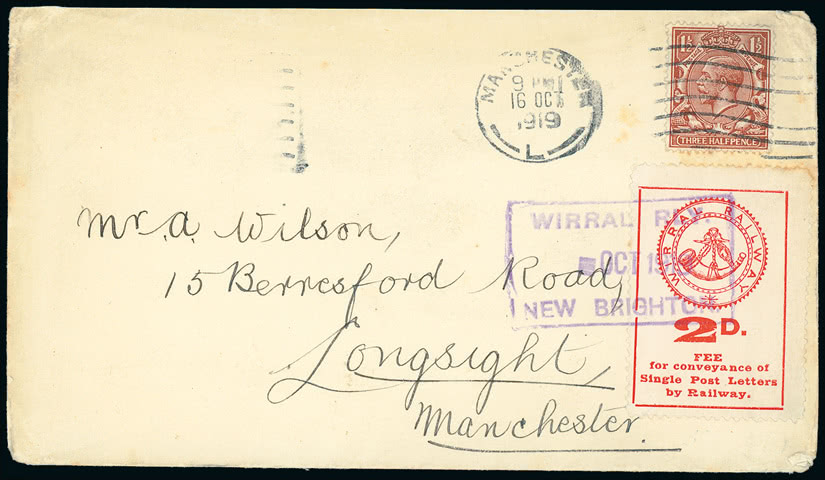 MANCHESTER
9 PM
16 OCT
1919
L
1½ 1½
THREE HALFPENCE
Mr. A. Wilson,
15 Berresford Road,
Longsight,
Manchester.
WIRRAL RLY.
OCT 19
NEW BRIGHTON
WIRRAL RAILWAY
2D.
FEE
for conveyance of
Single Post Letters
by Railway.